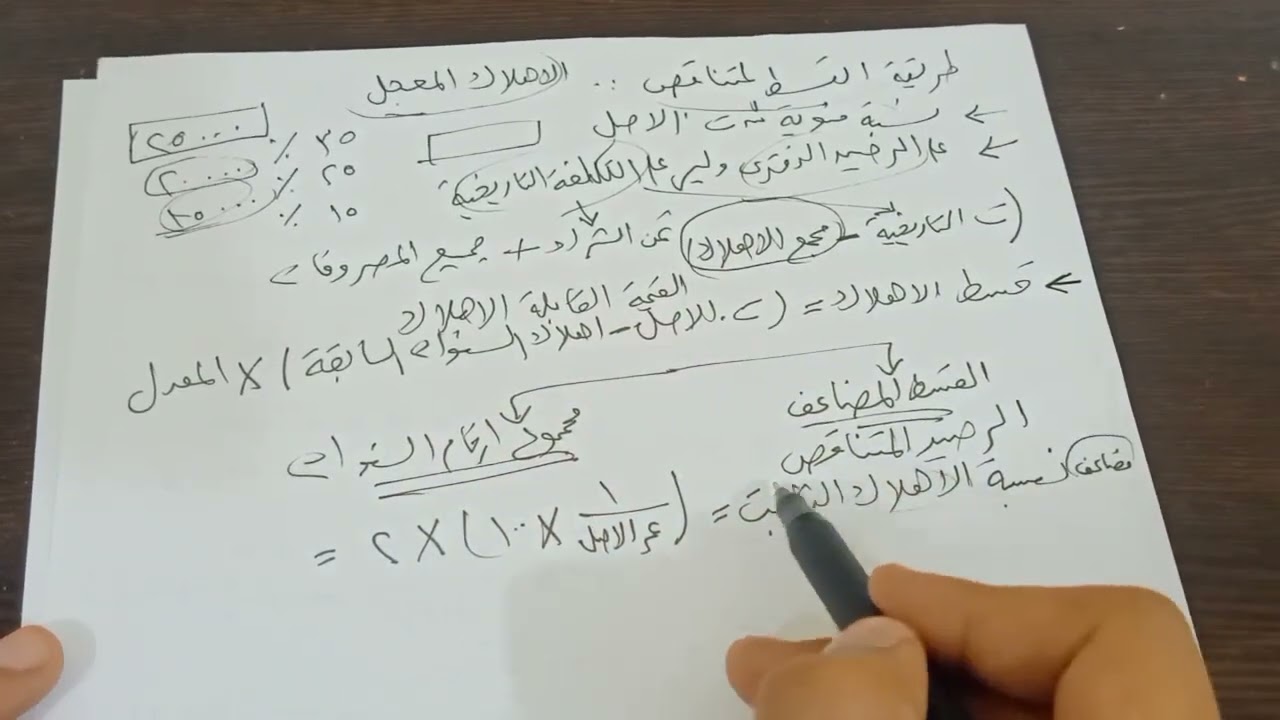 طريقة القسط المتناقص .. الاهلاك المعجل
← نسبة مئوية من ت الاصل
← على الرصيد الدفتري وليس على التكلفة التاريخية
٣٥ ٪ ٢٥٠٠٠
٢٥ ٪ ٢٠٠٠٠
١٥ ٪
(ت التاريخية - مجمع الاهلاك)
ثمن الشراء + جميع المصروفات
القيمة القابلة الاهلاك
← قسط الاهلاك = (ت. للاصل - اهلاك السنوات السابقة) X المعدل
القسط المضاعف
الرصيد المتناقص
مجموع ارقام السنوات
مضاعف نسبة الاهلاك الثابت = (١/عمر الاصل X ١٠٠) X ٢ =